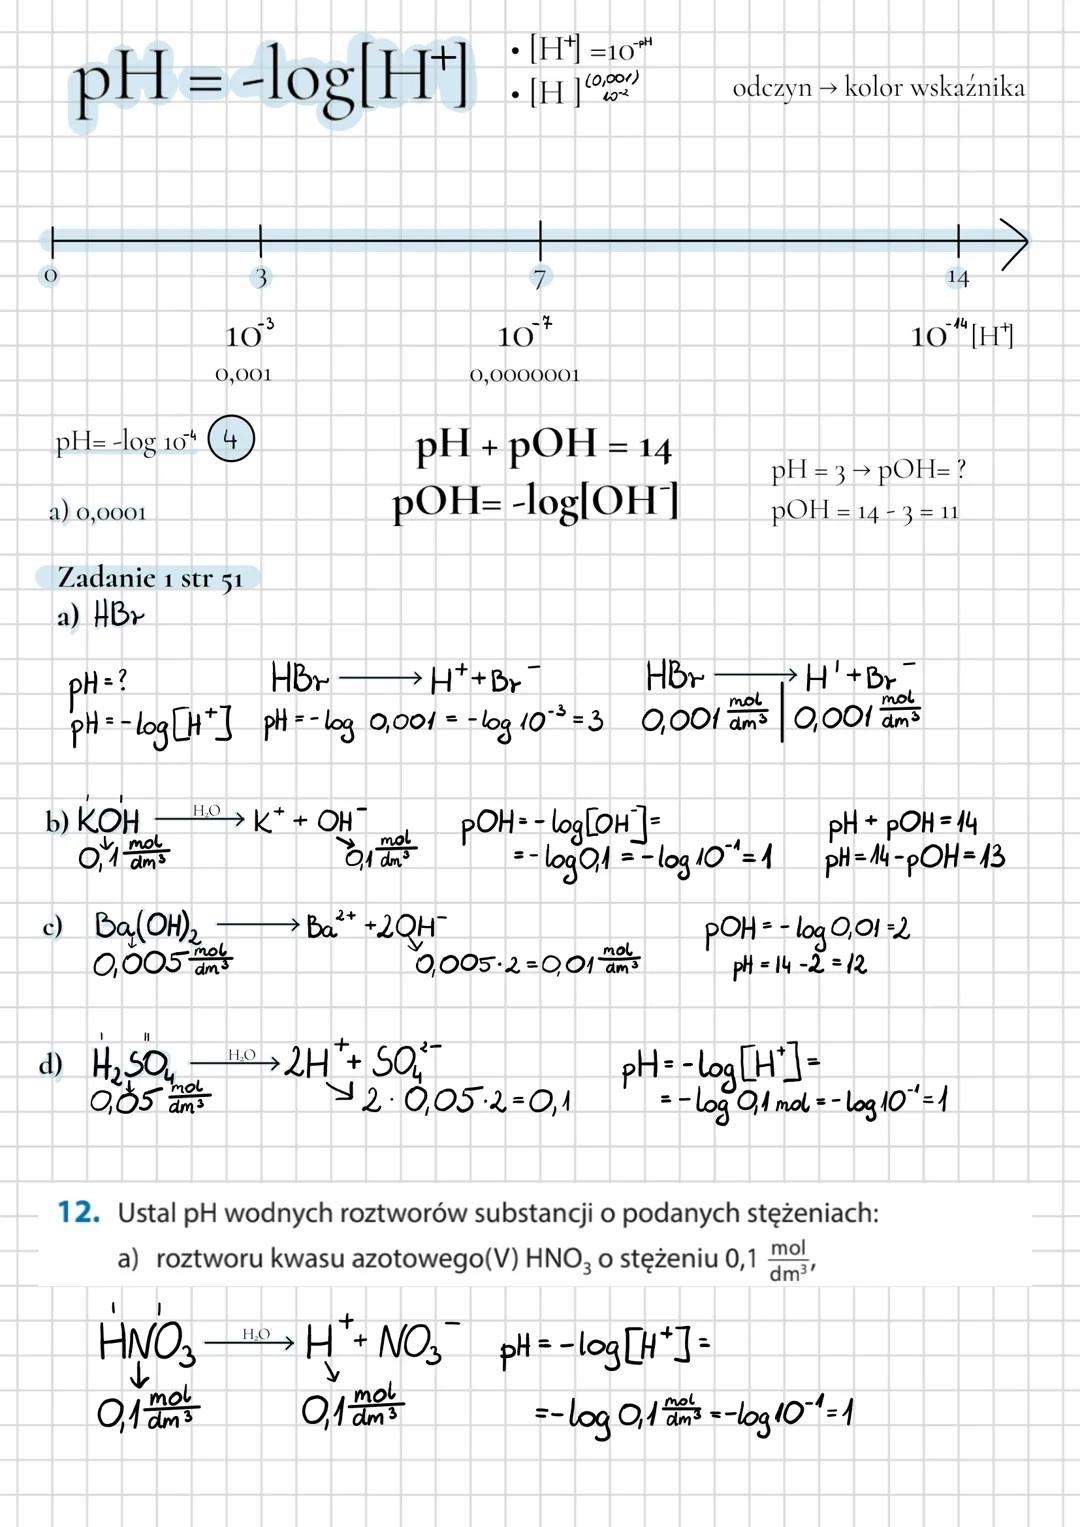 pH = -log[H⁺]
• [H⁺] = 10⁻ᵖᴴ
• [H ] (0,001) 10⁻²
odczyn → kolor wskaźnika
0 3 7 14
10⁻³ 10⁻⁷ 10⁻¹⁴ [H⁺]
0,001 0,0000001
pH= -log 10⁻⁴ 4
a) 0,0001
pH + pOH = 14
pOH= -log[OH⁻]
pH = 3 → pOH= ?
pOH = 14 - 3 = 11
Zadanie 1 str 51
a) HBr
pH = ?
pH = -log[H⁺]
HBr → H⁺ + Br⁻
pH = -log 0,001 = -log 10⁻³ = 3
HBr → H' + Br⁻
0,001 mol/dm³ | 0,001 mol/dm³
b) KOH H₂O → K⁺ + OH⁻
0,1 mol/dm³ 0,1 mol/dm³
pOH = -log[OH⁻] =
= -log 0,1 = -log 10⁻¹ = 1
pH + pOH = 14
pH = 14 - pOH = 13
c) Ba(OH)₂ → Ba²⁺ + 2OH⁻
0,005 mol/dm³ 0,005·2 = 0,01 mol/dm³
pOH = -log 0,01 = 2
pH = 14 - 2 = 12
I II
d) H₂SO₄ H₂O → 2H⁺ + SO₄²⁻
0,05 mol/dm³ ↘ 2·0,05·2 = 0,1
pH = -log[H⁺] =
= -log 0,1 mol = -log 10⁻¹ = 1
12. Ustal pH wodnych roztworów substancji o podanych stężeniach:
a) roztworu kwasu azotowego(V) HNO₃ o stężeniu 0,1 mol/dm³,
I I
HNO₃ H₂O → H⁺ + NO₃⁻
0,1 mol/dm³ 0,1 mol/dm³
pH = -log[H⁺] =
= -log 0,1 mol/dm³ = -log 10⁻¹ = 1